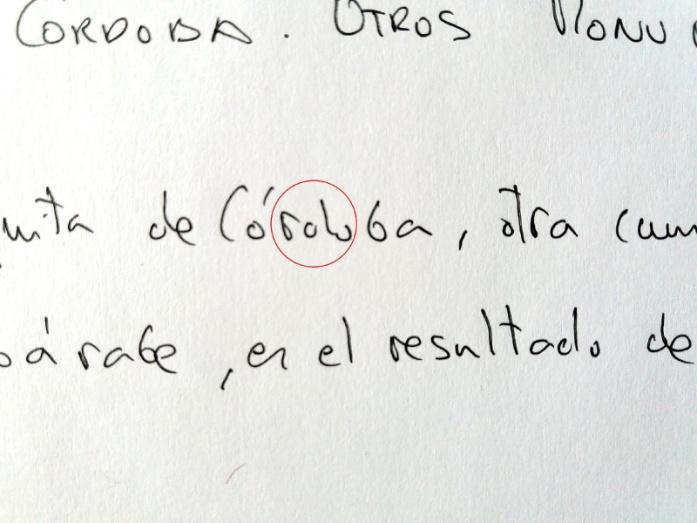 CÓRDOBA. OTROS MONU
de Córdoba, otra cum
árabe, es el resultado de